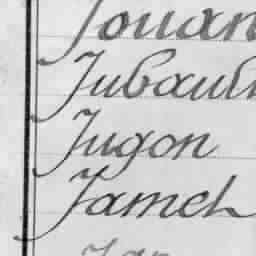 Jouan
Jubault
Jugon
Jamet